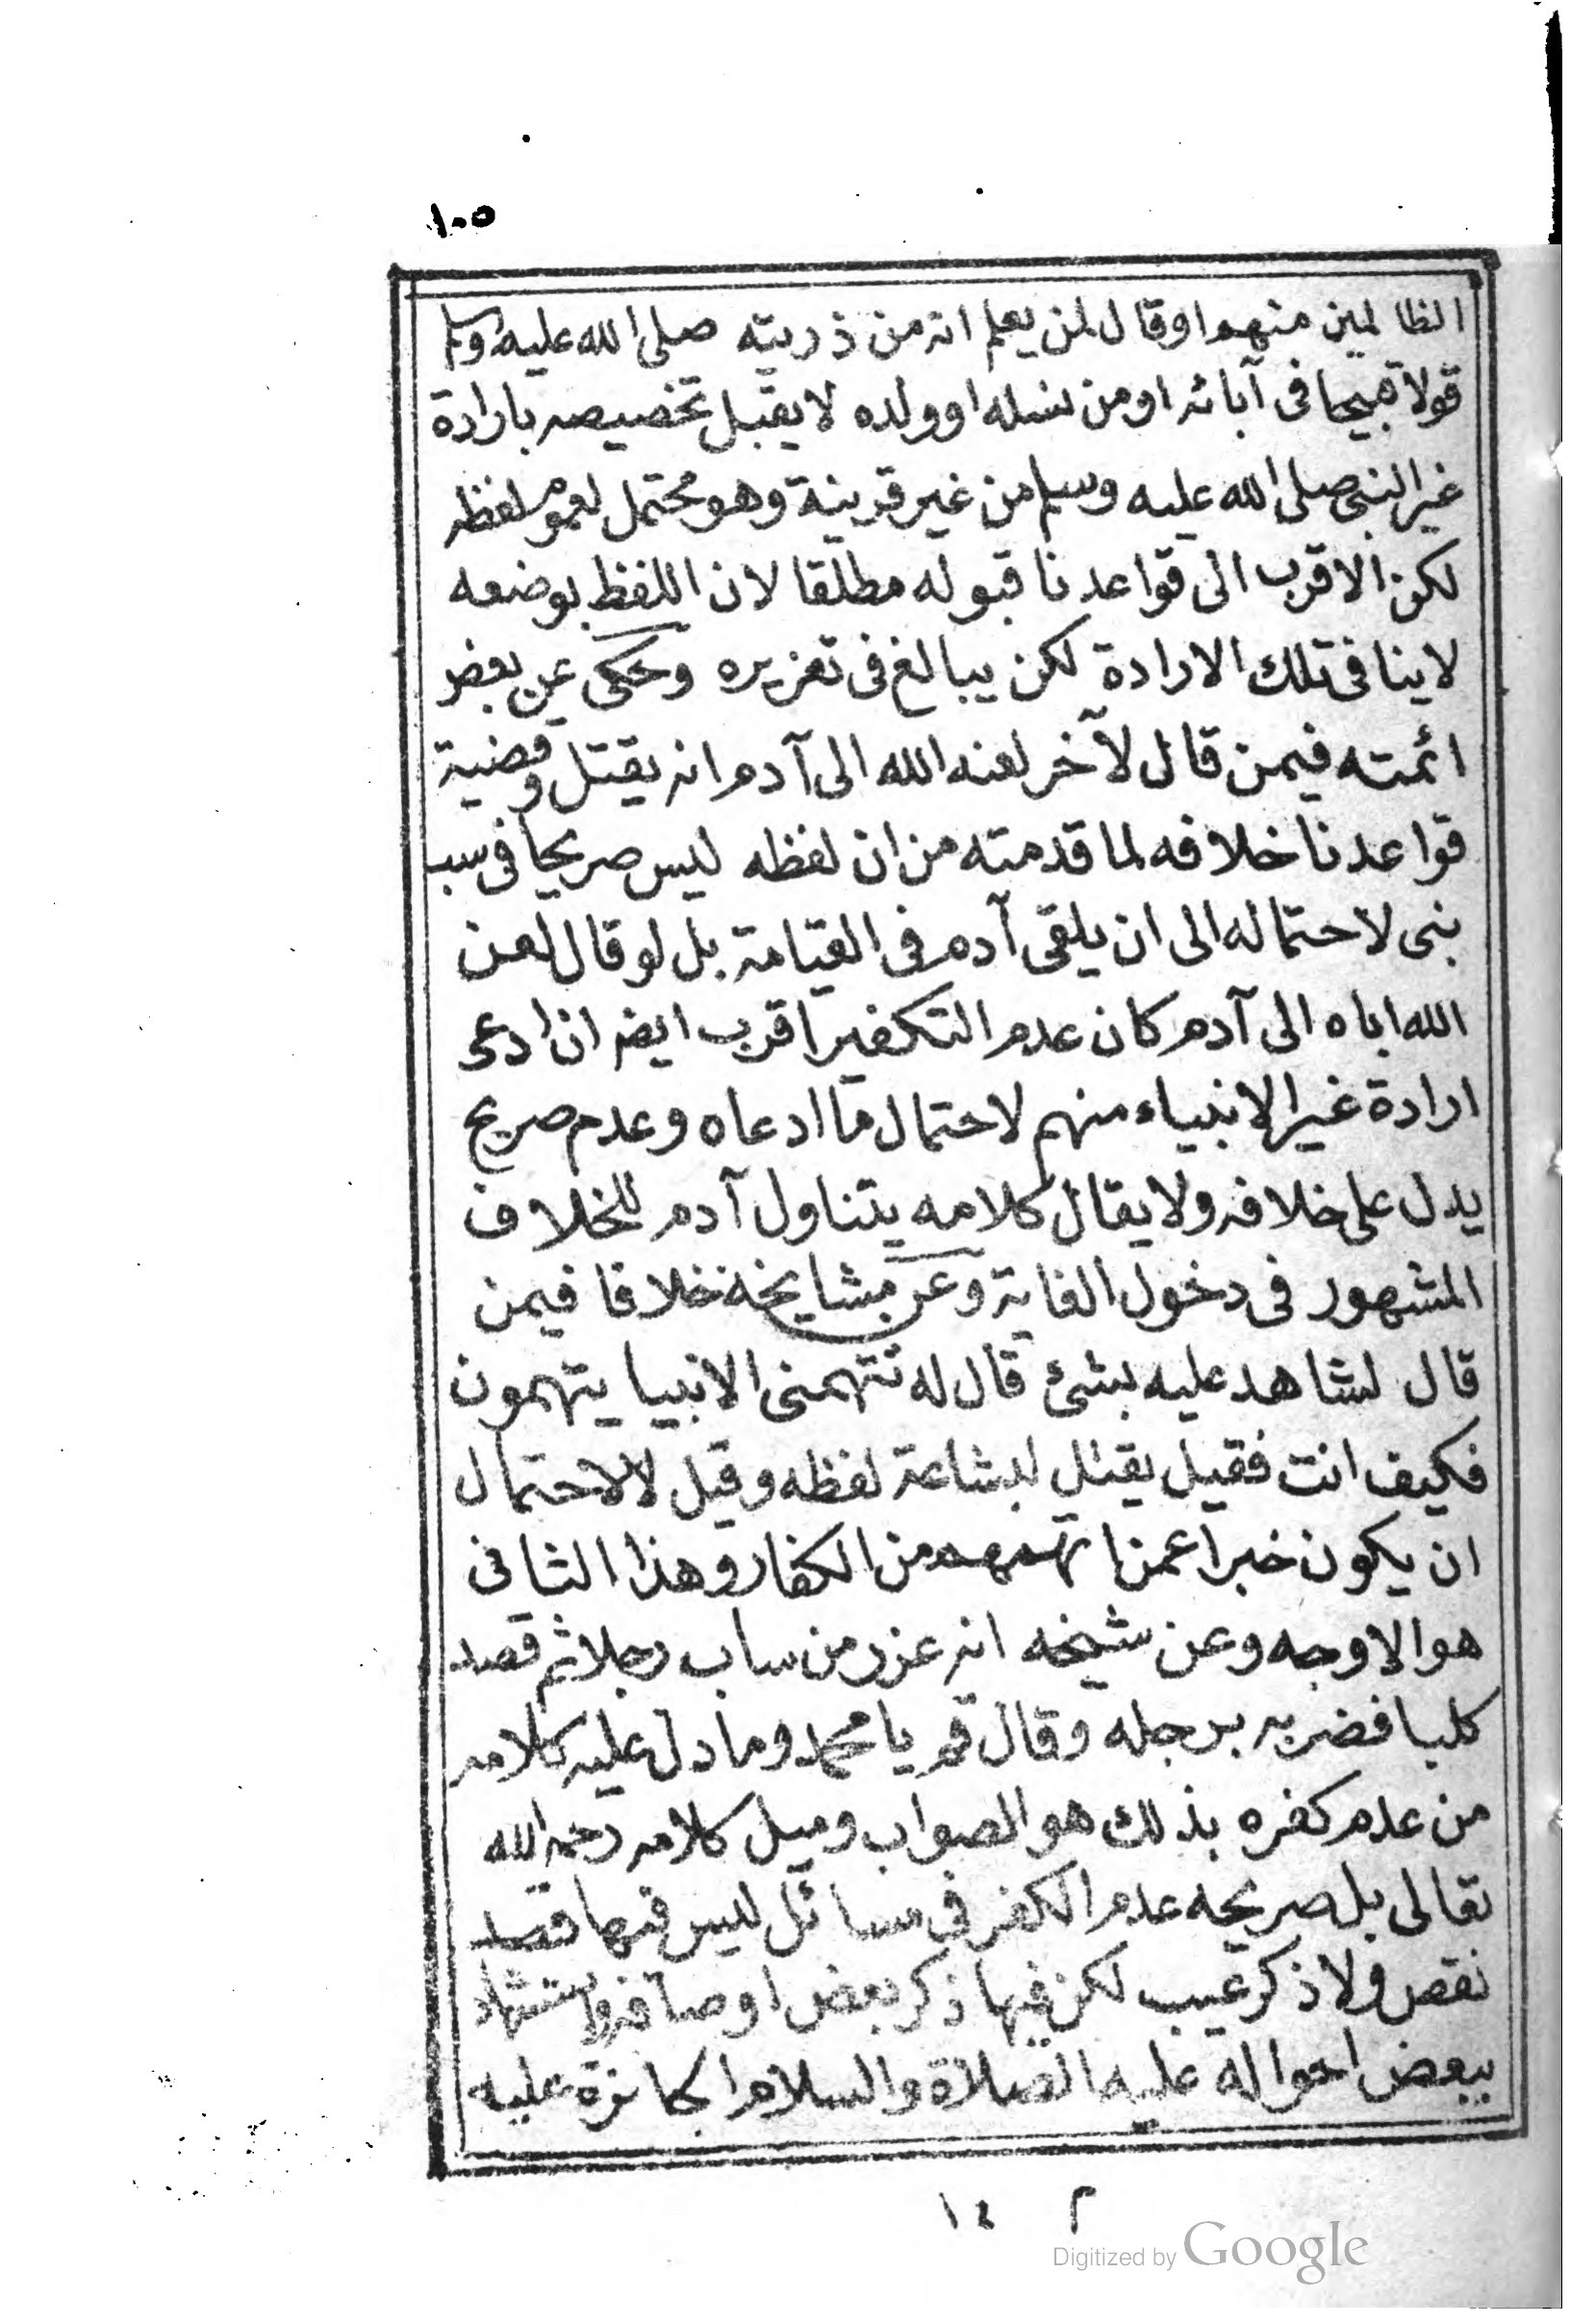 ١٠٥
الظالمين منهم او قال لمن يعلم انه من ذريته صلى الله عليه وسلم
قولا قبيحا فى آبائه او من نسله او ولده لا يقبل تخصيصه بارادة
غير النبى صلى الله عليه وسلم من غير قرينة وهو محتمل لعموم لفظه
لكن الاقرب الى قواعدنا قبوله مطلقا لان اللفظ بوضعه
لا ينافى تلك الارادة لكن يبالغ فى تعزيره وحكى عن بعض
ائمته فيمن قال لآخر لعنه الله الى آدم انه يقتل وقضية
قواعدنا خلافه لما قدمته من ان لفظه ليس صريحا فى سب
نبى لاحتماله الى ان يلقى آدم فى القيامة بل لو قال لعن
الله اباه الى آدم كان عدم التكفير اقرب ايضا ان ادعى
ارادة غير الانبياء منهم لاحتمال ما ادعاه وعدم صريح
يدل على خلافه ولا يقال كلامه يتناول آدم للخلاف
المشهور فى دخول الغاية وعن مشايخه خلافا فيمن
قال لشاهد عليه بشئ قال له تتهمنى الانبيا يتهمون
فكيف انت فقيل يقتل لبشاعة لفظه وقيل لا لاحتمال
ان يكون خبرا عمن اتهمهم من الكفار وهذا الثانى
هو الاوجه وعن شيخه انه عزر من ساب رجلا ثم قصد
كلبا فضربه برجله وقال قم يا محمد وما دل عليه كلامه
من عدم كفره بذلك هو الصواب وميل كلامه رحمه الله
تعالى بل صريحه عدم الكفر فى مسائل ليس فيها قصد
نقص ولا ذكر عيب لكن فيها ذكر بعض اوصافه واستشهاد
ببعض احواله عليه الصلاة والسلام الجائزة عليه
١٤ م
Digitized by Google